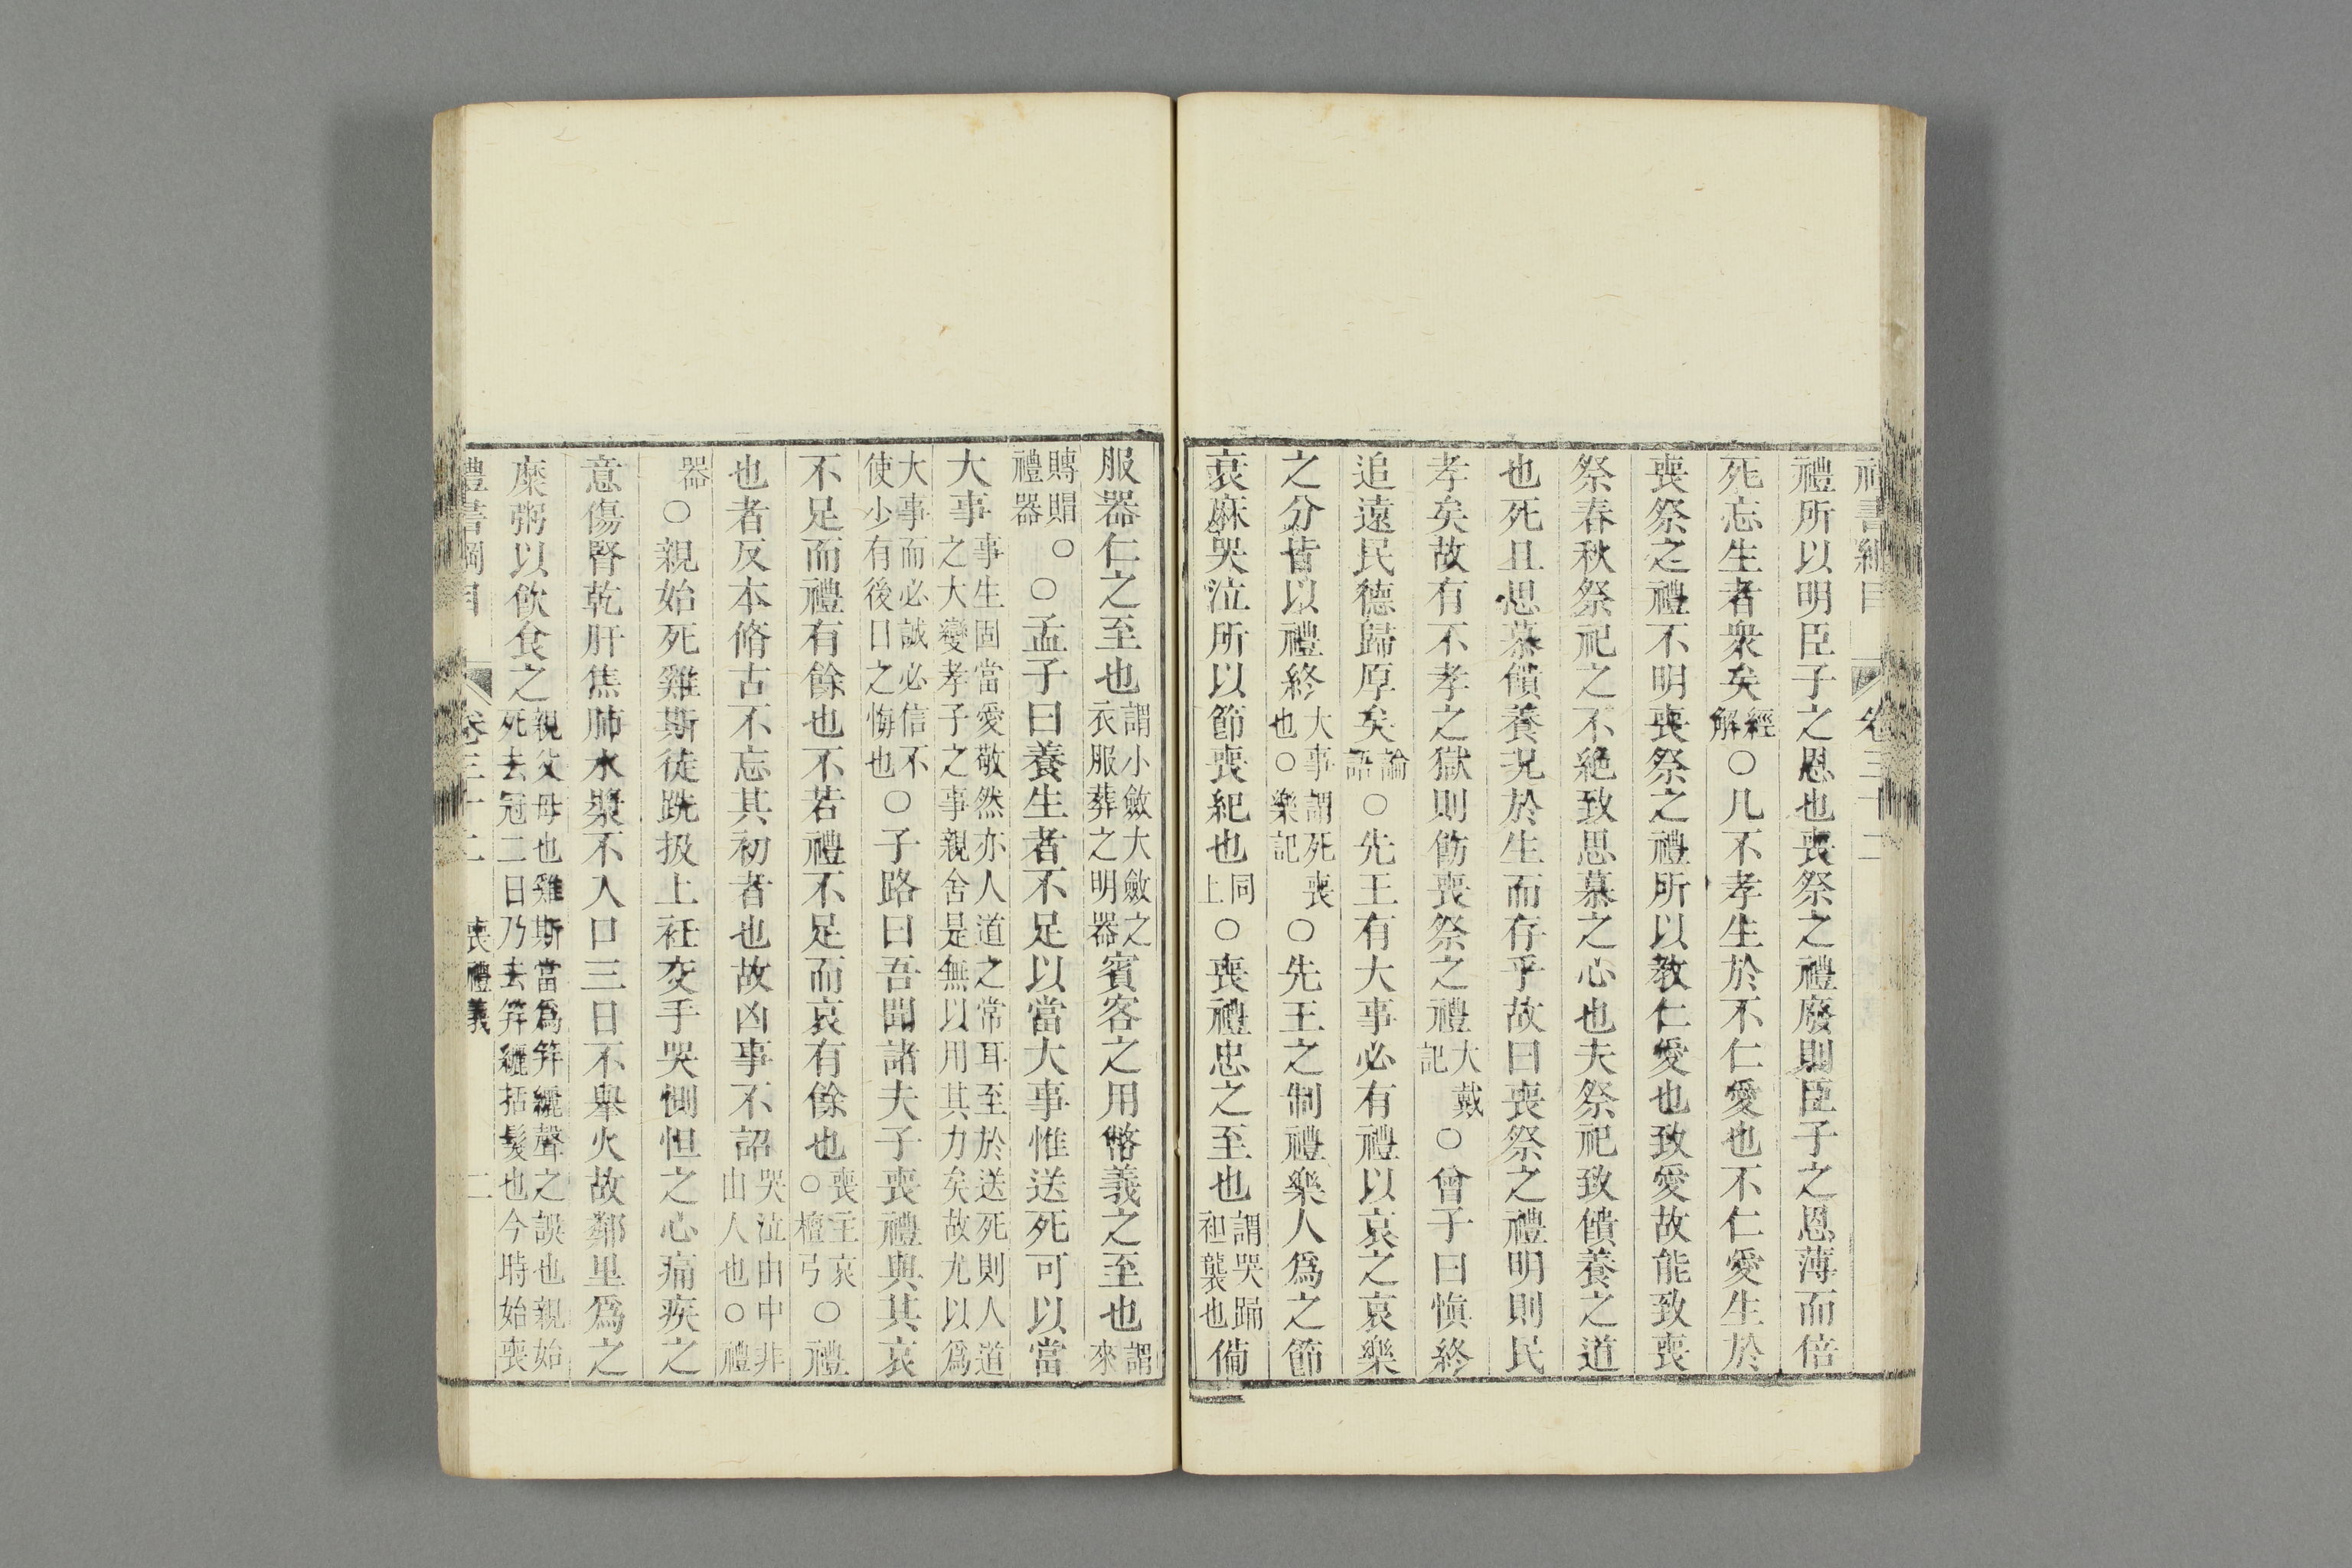 禮書綱目 卷三十二
禮所以明臣子之恩也喪祭之禮廢則臣子之恩薄而倍
死忘生者衆矣經解○凡不孝生於不仁愛也不仁愛生於
喪祭之禮不明喪祭之禮所以教仁愛也致愛故能致喪
祭春秋祭祀之不絕致思慕之心也夫祭祀致饋養之道
也死且思慕饋養況於生而存乎故曰喪祭之禮明則民
孝矣故有不孝之獄則飭喪祭之禮大戴記○曾子曰愼終
追遠民德歸厚矣論語○先王有大事必有禮以哀之哀樂
之分皆以禮終大事謂死喪也○樂記○先王之制禮樂人爲之節
衰麻哭泣所以節喪紀也同上○喪禮忠之至也謂哭踊袒襲也備
服器仁之至也謂小斂大斂之衣服葬之明器賓客之用幣義之至也謂來
賻賵○禮器○孟子曰養生者不足以當大事惟送死可以當
大事事生固當愛敬然亦人道之常耳至於送死則人道之大變孝子之事親舍是無以用其力矣故尤以爲
大事而必誠必信不使少有後日之悔也○子路曰吾聞諸夫子喪禮與其哀
不足而禮有餘也不若禮不足而哀有餘也喪主哀○檀弓○禮
也者反本脩古不忘其初者也故凶事不詔哭泣由中非由人也○禮
器○親始死雞斯徒跣扱上衽交手哭惻怛之心痛疾之
意傷腎乾肝焦肺水漿不入口三日不舉火故鄰里爲之
糜粥以飲食之親父母也雞斯當爲笄纚聲之誤也親始死去冠二日乃去笄纚括髮也今時始喪
禮書綱目 卷三十二 喪禮義 二